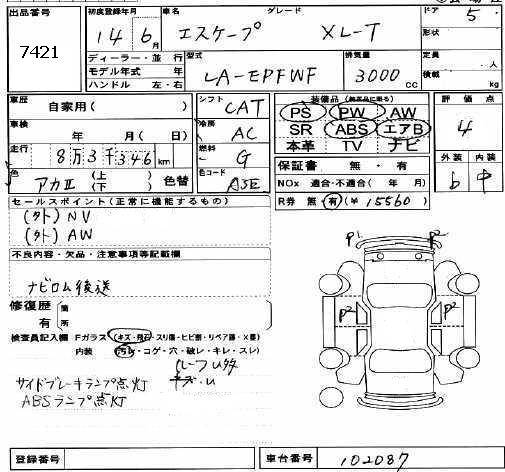 出品番号 7421
初度登録年月 14年6月
車名 エスケープ
グレード XL-T
ドア 5
形状
ディーラー・並行
モデル年式 年
ハンドル 左・右
型式 LA-EPFWF
排気量 3000 cc
定員 人
積載 kg
車歴 自家用( )
シフト CAT
装備品 PS PW AW
SR ABS エアB
本革 TV ナビ
評価点 4
車検 年 月( 日)
冷房 AC
走行 8万3千346km
燃料 G
保証書 無・有
外装 b
内装 中
色 アカII (上 下) 色替
色コード A5E
NOx 適合・不適合( 年 月)
R券 無・有(¥15560)
セールスポイント(正常に機能するもの)
(外)NV
(外)AW
不良内容・欠品・注意事項等記載欄
ナビロム後送
修復歴 箇
有 所
検査員記入欄 Fガラス(キズ・飛石・スリ傷・ヒビ割・リペア跡・X番)
内装 (汚れ・コゲ・穴・破レ・キレ・スレ)
サイドブレーキランプ点灯
ABSランプ点灯
P1 P2
P2 P2
登録番号
車台番号 102087